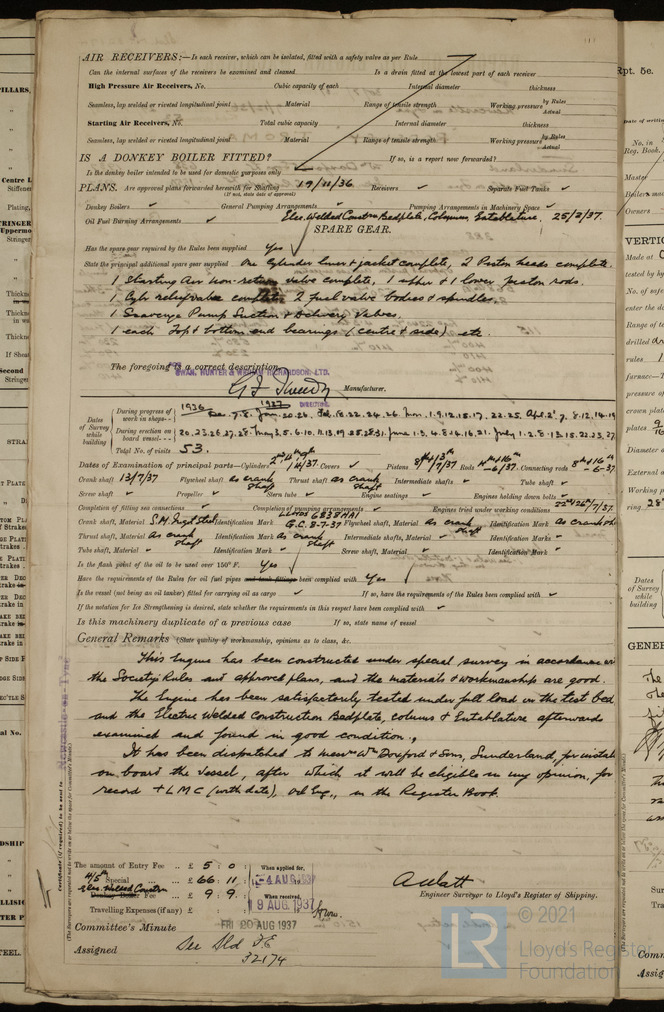 AIR RECEIVERS:—Is each receiver, which can be isolated, fitted with a safety valve as per Rule
Can the internal surfaces of the receivers be examined and cleaned Is a drain fitted at the lowest part of each receiver
High Pressure Air Receivers, No. Cubic capacity of each Internal diameter thickness
Seamless, lap welded or riveted longitudinal joint Material Range of tensile strength Working pressure by Rules Actual
Starting Air Receivers, No. Total cubic capacity Internal diameter thickness
Seamless, lap welded or riveted longitudinal joint Material Range of tensile strength Working pressure by Rules Actual
IS A DONKEY BOILER FITTED? If so, is a report now forwarded?
Is the donkey boiler intended to be used for domestic purposes only
PLANS. Are approved plans forwarded herewith for Shafting 19/11/36 Receivers ✓ Separate Fuel Tanks ✓
(If not, state date of approval)
Donkey Boilers ✓ General Pumping Arrangements ✓ Pumping Arrangements in Machinery Space ✓
Oil Fuel Burning Arrangements ✓ Elec. Welded Constrn Bedplate, Columns, Entablature, 25/2/37.
SPARE GEAR.
Has the spare gear required by the Rules been supplied Yes
State the principal additional spare gear supplied One cylinder liner & jacket complete, 2 Piston heads complete.
1 Starting Air non-return valve complete, 1 upper & 1 lower piston rods.
1 Cylr relief valve complete 2 fuel valve bodies & spindles.
1 Scavenge Pump Suction & Delivery Valves.
1 each Top & bottom end bearings (centre & side) etc.
The foregoing is a correct description,
SWAN, HUNTER & WIGHAM RICHARDSON, LTD.
G F Tweedy Manufacturer.
DIRECTOR.
Dates of Survey while building
During progress of work in shops- - 1936 Dec. 7.8. 1937 Jan. 20.26. Feb. 18.22.24.26. Mar. 1.9.12.15.17.22.25. Apl. 2. 7. 8.12.14.19
During erection on board vessel- - - 20.23.26.27.28. May 3.5.6.10.11.13.19.25.28.31. June 1.3.4.8.14.16.21. July 1.2.8.13.15.22.23.27.
Total No. of visits 53.
Dates of Examination of principal parts—Cylinders Covers ✓ Pistons Rods Connecting rods
Crank shaft 13/7/37 Flywheel shaft as crank shaft Thrust shaft as crank shaft Intermediate shafts ✓ Tube shaft ✓
Screw shaft ✓ Propeller ✓ Stern tube ✓ Engine seatings ✓ Engines holding down bolts ✓
Completion of fitting sea connections ✓ Completion of pumping arrangements ✓ Engines tried under working conditions 22nd/26th/7/37.
Crank shaft, Material S.M. Ingot Steel Identification Mark LLOYDS 6838 HAI G.C. 8-7-37 Flywheel shaft, Material as crank shaft Identification Mark as crank sh
Thrust shaft, Material as crank shaft Identification Mark as crank shaft Intermediate shafts, Material ✓ Identification Marks ✓
Tube shaft, Material ✓ Identification Mark ✓ Screw shaft, Material ✓ Identification Mark ✓
Is the flash point of the oil to be used over 150° F. Yes
Have the requirements of the Rules for oil fuel pipes and tank fittings been complied with Yes
Is the vessel (not being an oil tanker) fitted for carrying oil as cargo ✓ If so, have the requirements of the Rules been complied with ✓
If the notation for Ice Strengthening is desired, state whether the requirements in this respect have been complied with ✓
Is this machinery duplicate of a previous case If so, state name of vessel
General Remarks (State quality of workmanship, opinions as to class, &c.
This Engine has been constructed under special survey in accordance w
the Society's Rules and approved plans, and the materials & workmanship are good.
The Engine has been satisfactorily tested under full load on the test bed
and the Electric Welded Construction Bedplate, columns & Entablature afterwards
examined and found in good condition.
It has been dispatched to Messrs Wm Doxford & Sons, Sunderland, for install
on board the Vessel, after which it will be eligible in my opinion, for
record + LMC (with date), Oil Eng., in the Register Book.
Newcastle-on-Tyne
Certificate (if required) to be sent to
(The Surveyors are requested not to write on or below the space for Committee's Minute.)
The amount of Entry Fee .. £ 5 : 0 :
4/5th Special .. £ 66 : 11 :
Elec. Welded Constrn Donkey Boiler Fee .. £ 9 : 9 :
Travelling Expenses (if any) £ : :
When applied for, -4 AUG 1937
When received, 9 AUG. 1937
A Watt
Engineer Surveyor to Lloyd's Register of Shipping.
Committee's Minute FRI 20 AUG 1937
Assigned See Sld F.E. 32174
Rpt. 5c.
© 2021
Lloyd's Register
Foundation
LR